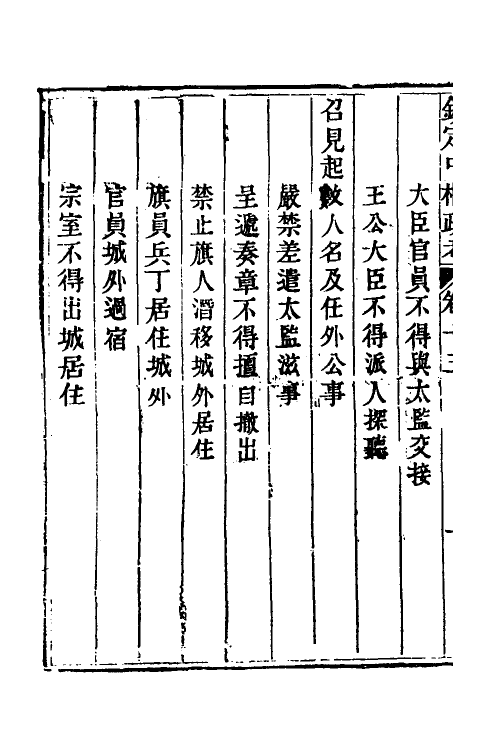 欽定中樞政考 卷十三
大臣官員不得與太監交接
王公大臣不得派人探聽
召見起數人名及任外公事
嚴禁差遣太監滋事
呈遞奏章不得擅自撤出
禁止旗人潛移城外居住
旗員兵丁居住城外
官員城外過宿
宗室不得出城居住